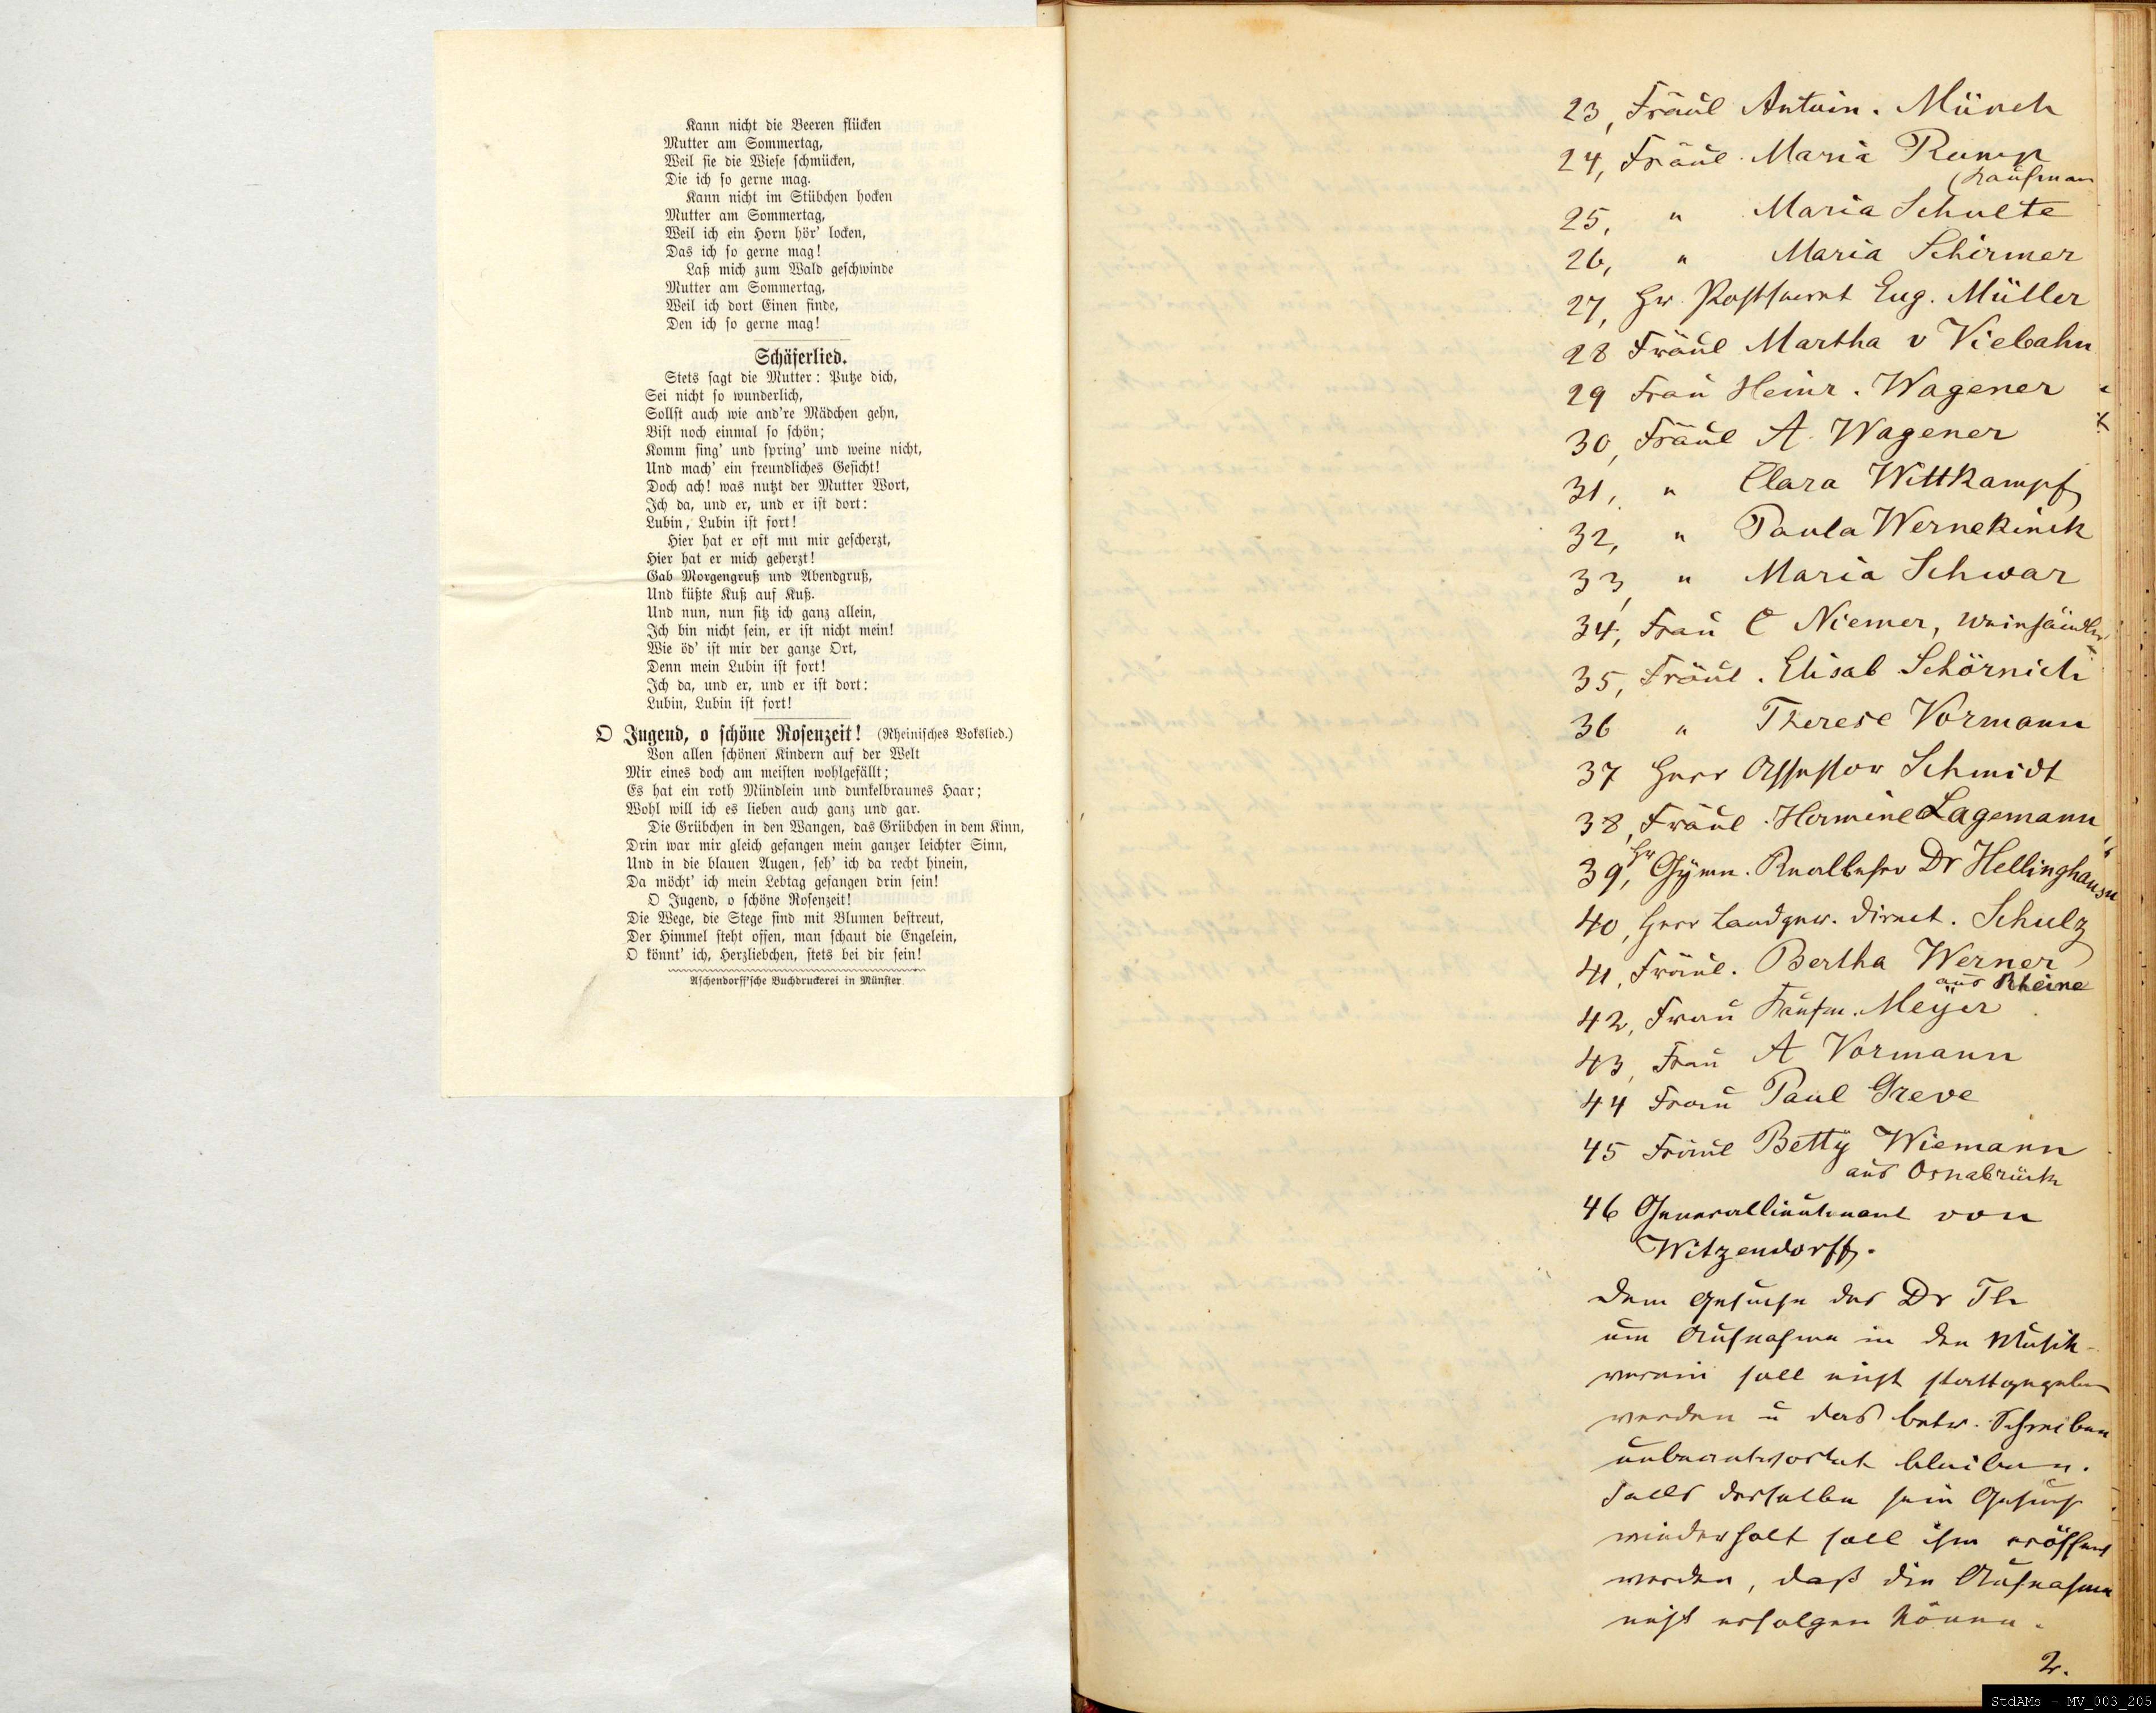 Kann nicht die Beeren flücken
Mutter am Sommertag,
Weil sie die Wiese schmücken,
Die ich so gerne mag.
Kann nicht im Stübchen hocken
Mutter am Sommertag,
Weil ich ein Horn hör' locken,
Das ich so gerne mag!
Laß mich zum Wald geschwinde
Mutter am Sommertag,
Weil ich dort Einen finde,
Den ich so gerne mag!
Schäferlied.
Stets sagt die Mutter: Putze dich,
Sei nicht so wunderlich,
Sollst auch wie and're Mädchen gehn,
Bist noch einmal so schön;
Komm sing' und spring' und weine nicht,
Und mach' ein freundliches Gesicht!
Doch ach! was nutzt der Mutter Wort,
Ich da, und er, und er ist dort:
Lubin, Lubin ist fort!
Hier hat er oft mit mir gescherzt,
Hier hat er mich geherzt!
Gab Morgengruß und Abendgruß,
Und küßte Kuß auf Kuß.
Und nun, nun sitz ich ganz allein,
Ich bin nicht sein, er ist nicht mein!
Wie öd' ist mir der ganze Ort,
Denn mein Lubin ist fort!
Ich da, und er, und er ist dort:
Lubin, Lubin ist fort!
O Jugend, o schöne Rosenzeit! (Rheinisches Volkslied.)
Von allen schönen Kindern auf der Welt
Mir eines doch am meisten wohlgefällt;
Es hat ein roth Mündlein und dunkelbraunes Haar;
Wohl will ich es lieben auch ganz und gar.
Die Grübchen in den Wangen, das Grübchen in dem Kinn,
Drin war mir gleich gefangen mein ganzer leichter Sinn,
Und in die blauen Augen, seh' ich da recht hinein,
Da möcht' ich mein Lebtag gefangen drin sein!
O Jugend, o schöne Rosenzeit!
Die Wege, die Stege sind mit Blumen bestreut,
Der Himmel steht offen, man schaut die Engelein,
O könnt' ich, Herzliebchen, stets bei dir sein!
Aschendorff'sche Buchdruckerei in Münster
23, Fräul Antoin. Münch
24, Fräul. Maria Rump
(Kaufman
25, " Maria Schulte
26, " Maria Schirmer
27, Hr. Eug. Müller
28 Fräul Martha v Viebahn
29 Frau Heinr. Wagener
30, Fräul A. Wagener
31, " Clara Wittkampf
32, " Paula Wernekinck
33, " Maria Schwar
34, Frau C Niemer, Weinhändler
35, Fräul. Elisab
36 " Therese Vormann
37 Herr Assessor Schmidt
38, Fräul. Hermine Lagemann
39, Hr Gymn. Reallehrer Dr Hellinghausen
40, Herr Landger. Direct. Schulz
41, Fräul. Bertha Werner
aus Rheine
42, Frau Kaufm. Meyer
43, Frau A Vormann
44 Frau Paul Greve
45 Fräul Betty Wiemann
aus Osnabrück
46 Generallieutenant von
Witzendorff.
Dem Gesuche des Dr Th
um Aufnahme in den Musik-
verein soll nicht stattgegeben
werden u das betr. Schreiben
unbeantwortet bleiben.
Falls derselbe sein Gesuch
wiederholt soll ihm eröffnet
werden, daß die Aufnahme
nicht erfolgen könne.
2.
StdAMs - MV_003_205